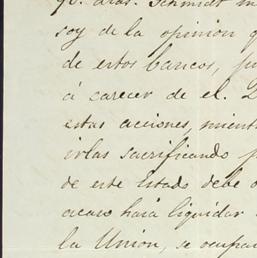 Schmidt
soy de la opinion
de estos bancos,
á carecer de el.
estas acciones,
irlas sacrificando
de este Estado debe
acaso hará liquidar
la Union, se